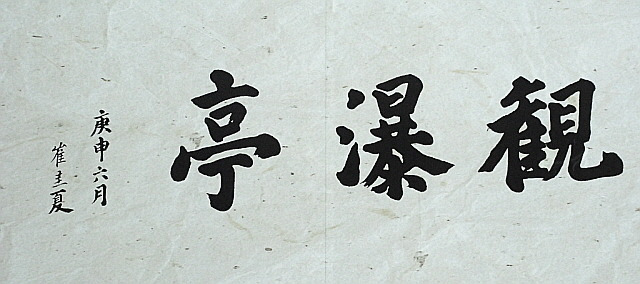 観瀑亭
庚申六月
崔圭夏